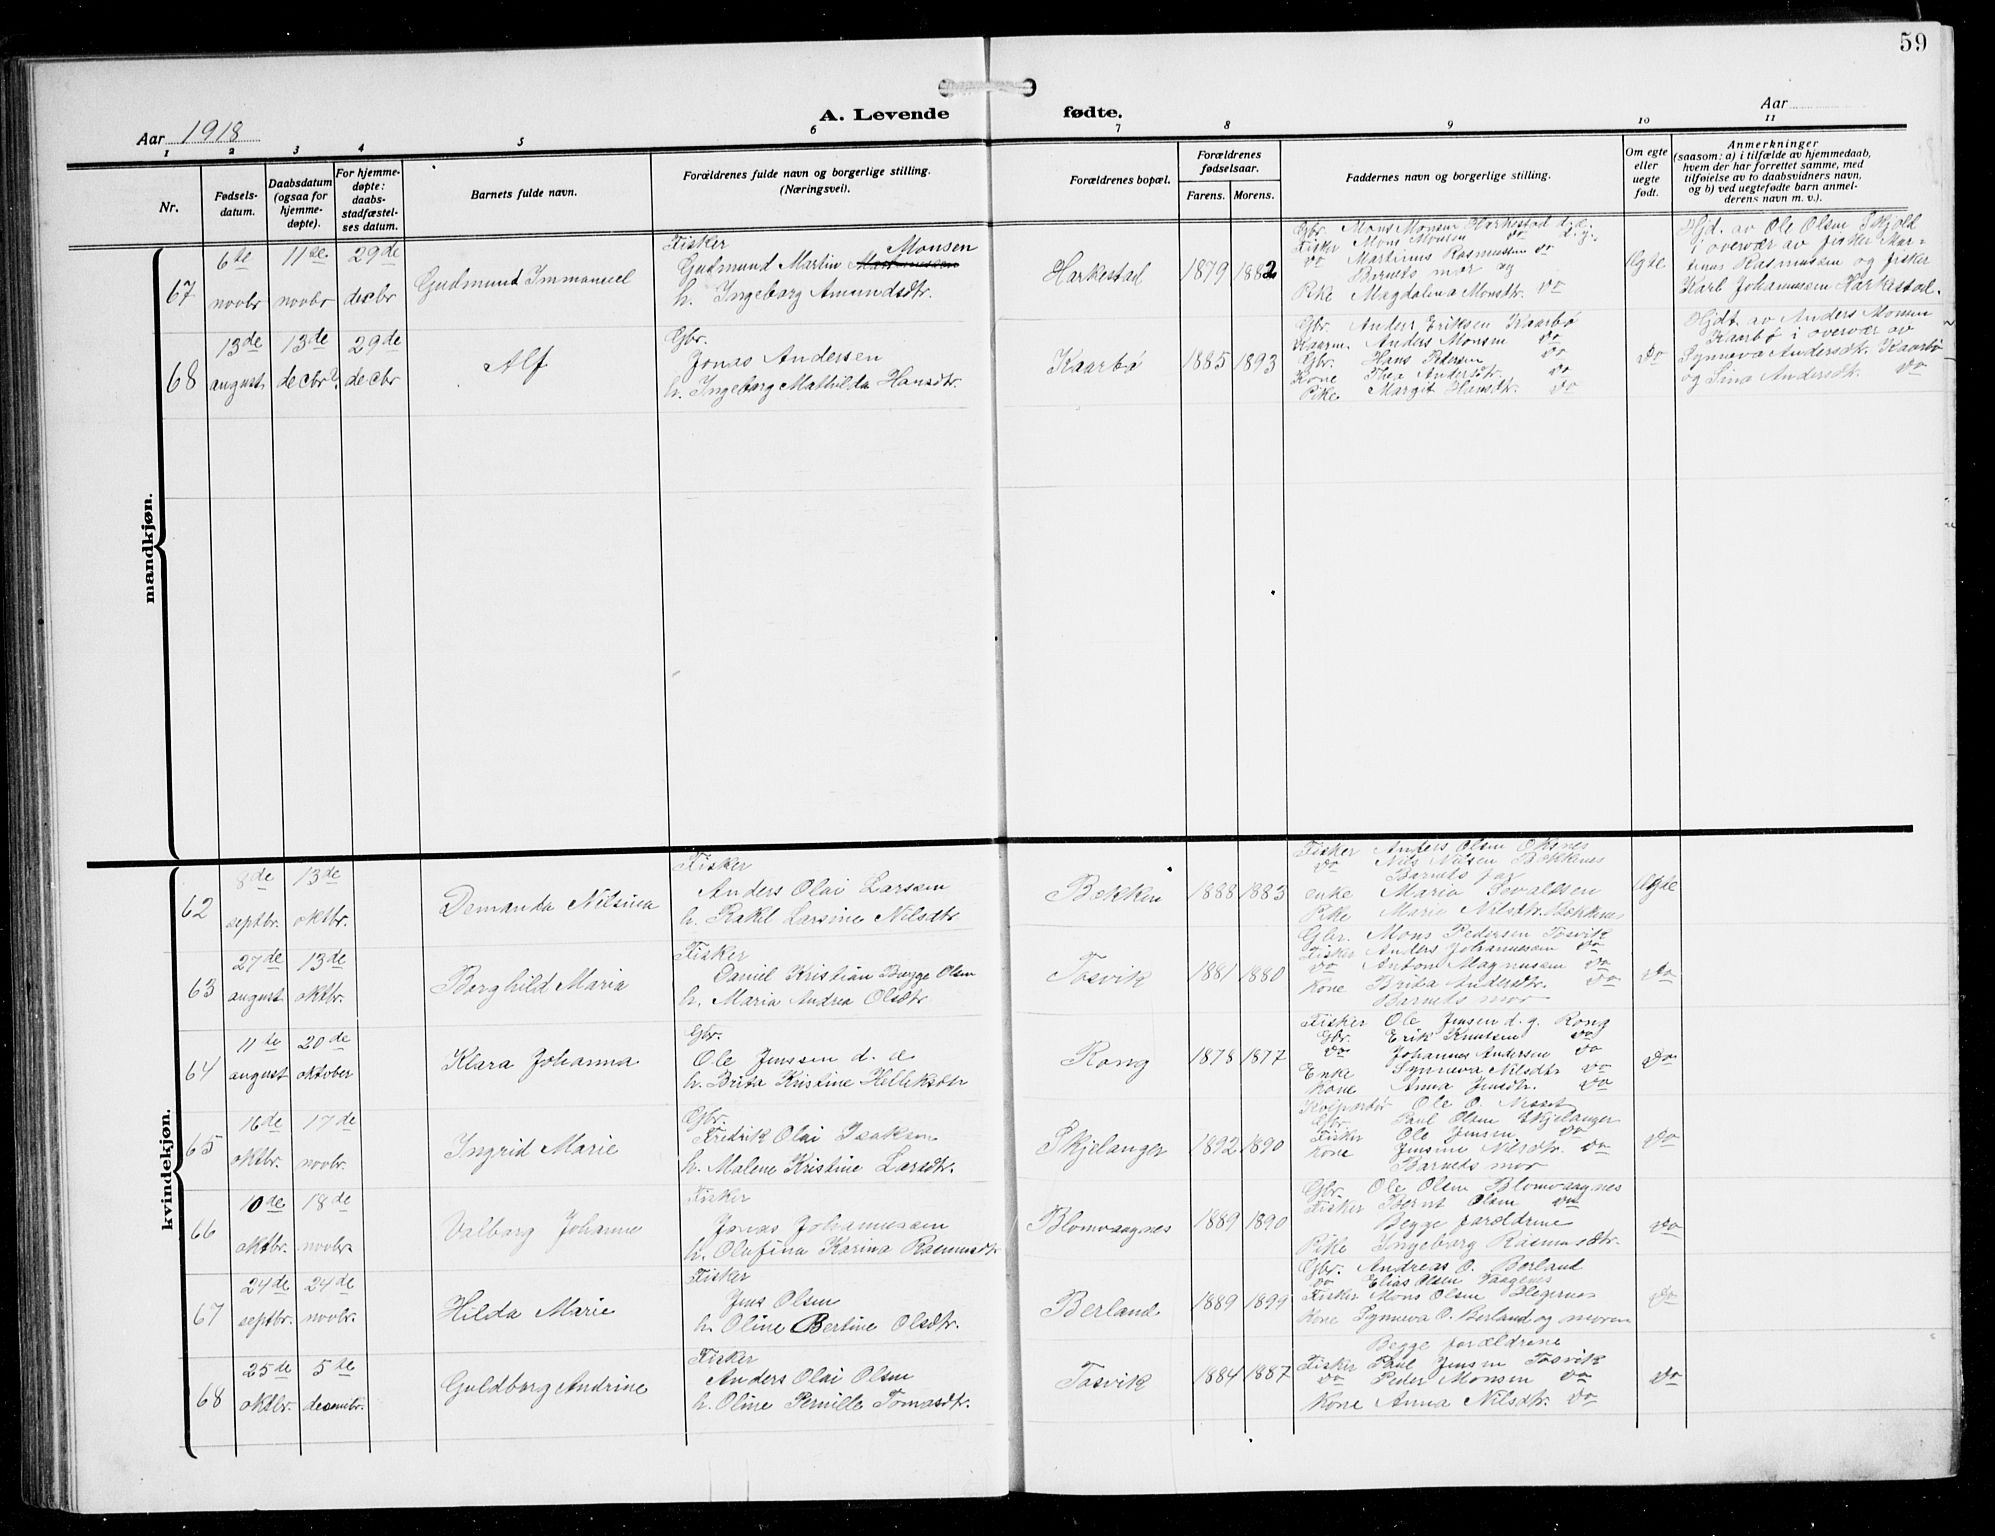 59
A. Levende fødte.
Aar 1918
Aar
1 2 3 4 5 6 7 8 9 10 11
Nr.
Fødsels-
datum.
Daabsdatum
(ogsaa for
hjemme-
døpte).
For hjemme-
døpte:
daabs-
stadfæstel-
ses datum.
Barnets fulde navn.
Forældrenes fulde navn og borgerlige stilling.
(Næringsvei).
Forældrenes bopæl.
Forældrenes
fødselsaar.
Farens. Morens.
Faddernes navn og borgerlige stilling.
Om egte
eller
uegte
født.
Anmerkninger
(saasom: a) i tilfælde av hjemmedaab,
hvem der har forrettet samme, med
tilføielse av to daabsvidners navn,
og b) ved uegtefødte barn anmel-
derens navn m. v.).
mandkjøn.
67
6te
novbr
11te
novbr
29de
decbr
Gudmund Immanuel
Fisker
Gudmund Martin Monsen
h. Ingeborg Amundsdtr.
Harkestad
1879 1882
Gbr. Mons Monsen Harkestad
Fisker Mons Monsen do
do Martinus Rasmussen do
Barnets mor og
Pike Magdalena Monsdtr. do
Egte
Hjd. av Ole Olsen Skjold
i overvær av fisker Mar-
tinus Rasmussen og fisker
Karl Johannessen Harkestad.
68
13de
august
13de
decbr
29de
decbr
Alf
Gbr.
Jonas Andersen
h. Ingeborg Mathilda Hansdtr.
Kaarbø
1885 1893
Gbr. Anders Eriksen Kaarbø
Kaarm. Anders Monsen do
Gbr. Hans Petersen do
Kone Thea Andersdtr. do
Pike Margit Hansdtr. do
do
Hjdt. av Anders Monsen
Kaarbø i overvær av
Synneva Andersdtr. Kaarbø
og Sina Andersdtr. do
kvindekjøn.
62
8de
septbr.
13de
oktbr.
Demanda Nilsina
Fisker
Anders Olai Larsen
h. Rakel Larsine Nilsdtr
Bekken
1888 1883
Fisker Anders Olsen Oksnes
do Nils Nilsen Bekkenes
Barnets far
enke Maria Sevaldsen
Pike Marie Nilsdtr. Bekken
Egte
63
27de
august
13de
oktbr.
Borghild Maria
Fisker
Daniel Kristian Bagge Olsen
h. Maria Andrea Olsdtr
Tosvik
1881 1880
Gbr. Mons Pedersen Tosvik
Fisker Anders Johannessen do
do Anton Magnussen do
Kone Brita Andersdtr. do
Barnets mor
do
64
11te
august
20de
oktober
Klara Johanna
Gbr.
Ole Jenssen d. e
h. Brita Kristine Helleksdtr
Rong
1878 1877
Fisker Ole Jensen d. y. Rong
Gbr. Erik Knutsen do
do Johannes Andersen do
Enke Synneva Nilsdtr do
Kone Anna Jensdtr. do
do
65
16de
oktbr.
17de
novbr.
Ingrid Marie
Gbr.
Fredrik Olai Isaksen
h. Malene Kristine Larsdtr.
Skjelanger
1892 1890
Kolportør Ole O. Nesset
Gbr. Paul Olsen Skjelanger
Fisker Ole Jensen do
Kone Jensine Nilsdtr. do
Barnets mor
do
66
10de
oktbr.
18de
novbr.
Valborg Johanne
Fisker
Jonas Johannessen
h. Olufina Karina Rasmusdtr
Blomvaagnes
1889 1890
Gbr. Ole Olsen Blomvaagnes
Fisker Bernt Olsen do
Begge forældrene
Pike Ingeborg Rasmusdtr.
do
67
24de
septbr.
24de
novbr.
Hilda Marie
Fisker
Jens Olsen
h. Oline Bertine Olsdtr.
Berland
1889 1899
Gbr. Andreas O. Berland
do Elias Olsen
Fisker Mons Olsen
Kone Synneva O. Berland og moren
do
68
25de
oktbr.
5te
desembr.
Guldborg Andrine
Fisker
Anders Olai Olsen
h. Oline Pernille Tomasdtr.
Tosvik
1884 1887
Begge forældrene
Fisker Paul Jensen Tosvik
do Peder Monsen do
Kone Anna Nilsdtr. do
do